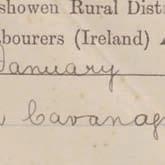 showen Rural Distr
bourers (Ireland) A
January
Cavanagh